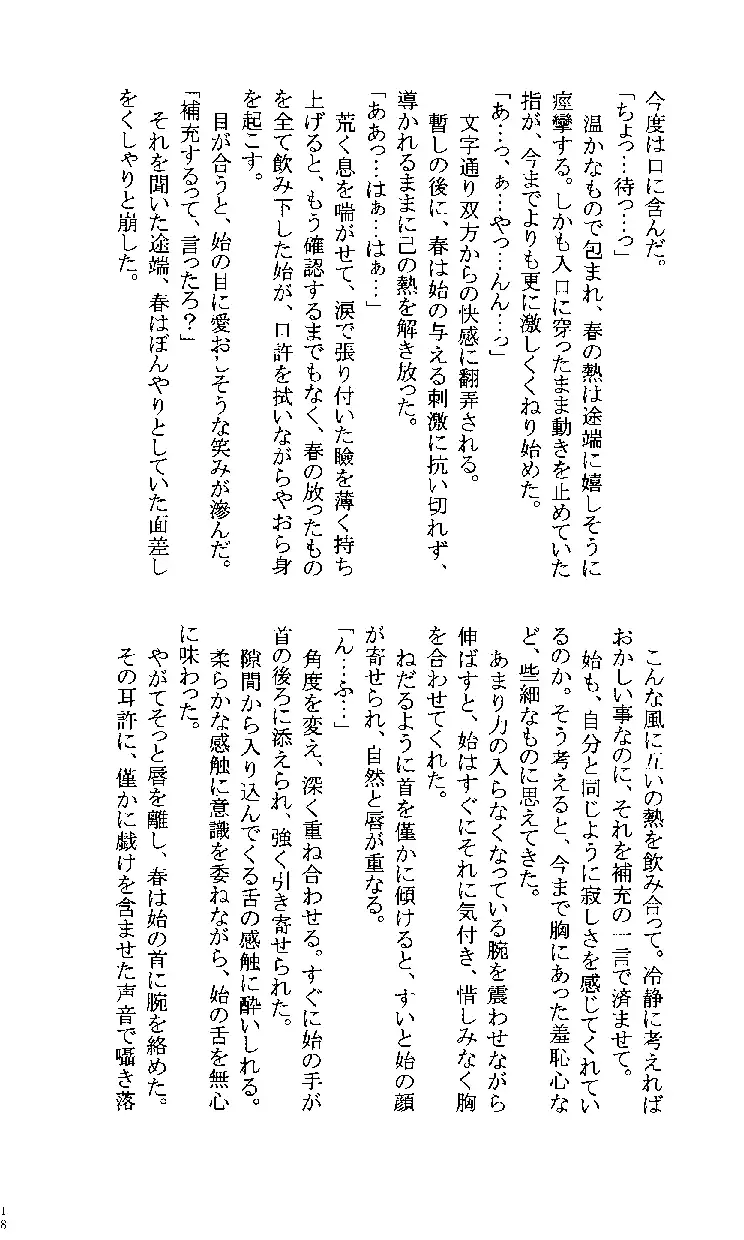 今度は口に含んだ。
「ちょっ…待っ…っ」
　温かなもので包まれ、春の熱は途端に嬉しそうに
痙攣する。しかも入口に穿ったまま動きを止めていた
指が、今までよりも更に激しくくねり始めた。
「あ…っ、ぁ…やっ…んん…っ」
　文字通り双方からの快感に翻弄される。
　暫しの後に、春は始の与える刺激に抗い切れず、
導かれるままに己の熱を解き放った。
「ああっ…はぁ…はぁ…」
　荒く息を喘がせて、涙で張り付いた瞼を薄く持ち
上げると、もう確認するまでもなく、春の放ったもの
を全て飲み下した始が、口許を拭いながらやおら身
を起こす。
　目が合うと、始の目に愛おしそうな笑みが滲んだ。
「補充するって、言ったろ？」
　それを聞いた途端、春はぼんやりとしていた面差し
をくしゃりと崩した。
　こんな風に互いの熱を飲み合って。冷静に考えれば
おかしい事なのに、それを補充の一言で済ませて。
　始も、自分と同じように寂しさを感じてくれてい
るのか。そう考えると、今まで胸にあった羞恥心な
ど、些細なものに思えてきた。
　あまり力の入らなくなっている腕を震わせながら
伸ばすと、始はすぐにそれに気付き、惜しみなく胸
を合わせてくれた。
　ねだるように首を僅かに傾けると、すいと始の顔
が寄せられ、自然と唇が重なる。
「ん…ふ…」
　角度を変え、深く重ね合わせる。すぐに始の手が
首の後ろに添えられ、強く引き寄せられた。
　隙間から入り込んでくる舌の感触に酔いしれる。
　柔らかな感触に意識を委ねながら、始の舌を無心
に味わった。
　やがてそっと唇を離し、春は始の首に腕を絡めた。
　その耳許に、僅かに戯けを含ませた声音で囁き落
18